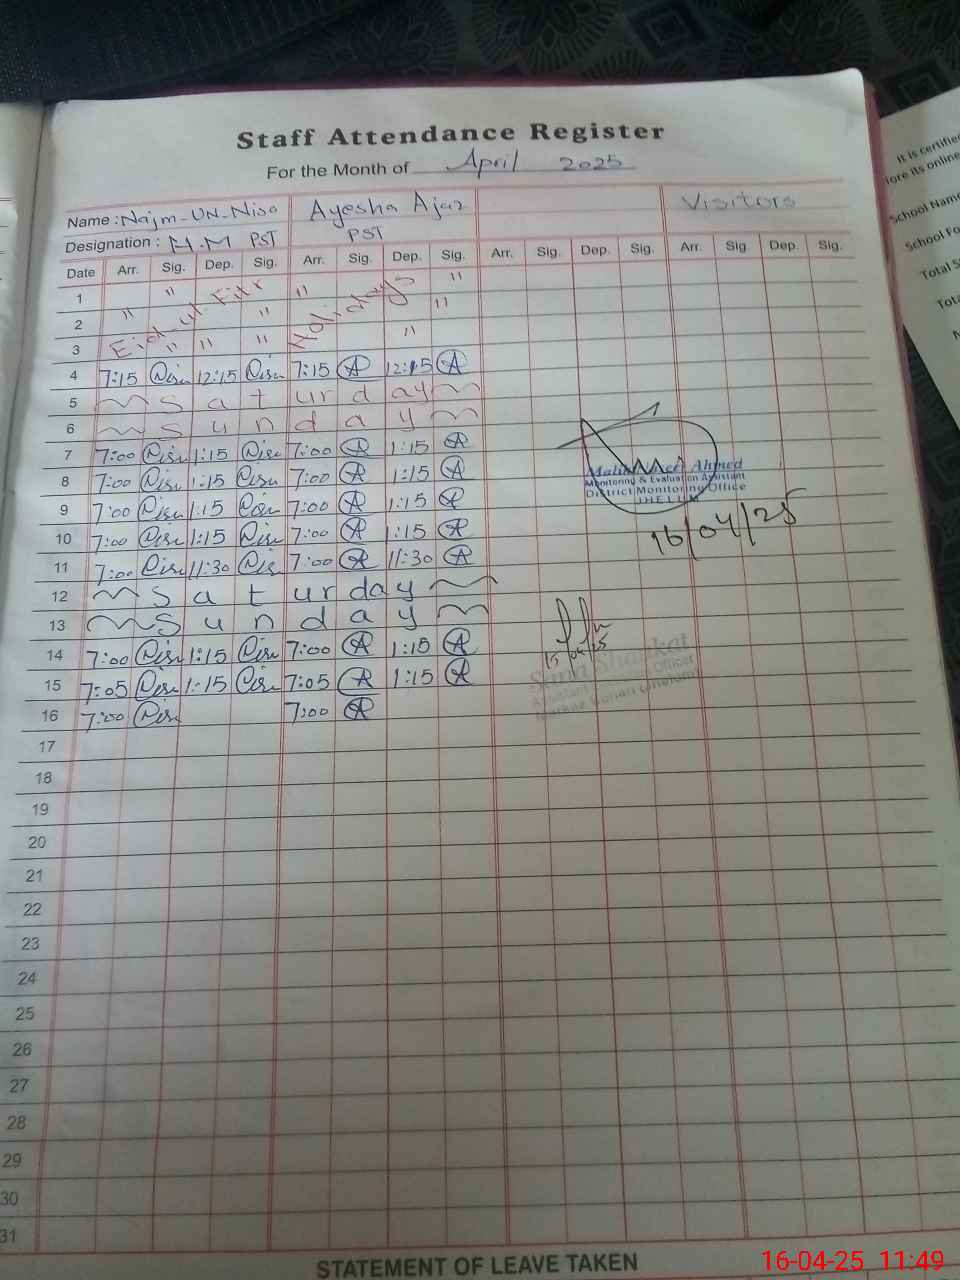 Staff Attendance Register
For the Month of April 2025
Name : Najm-UN-Nisa Ayesha Ajaz Visitors
Designation : H.M PST PST
Date Arr. Sig. Dep. Sig. Arr. Sig. Dep. Sig. Arr. Sig. Dep. Sig. Arr. Sig. Dep. Sig.
1 " " "
2 " Eid-ul-Fitr " Holidays "
3 " " " "
4 7:15 12:15 7:15 A 12:15 A
5 Saturday
6 Sunday
7 7:00 1:15 7:00 A 1:15 A
8 7:00 1:15 7:00 A 1:15 A
9 7:00 1:15 7:00 A 1:15 A
10 7:00 1:15 7:00 A 1:15 A
11 7:00 11:30 7:00 A 11:30 A
12 Saturday
13 Sunday
14 7:00 1:15 7:00 A 1:15 A
15 7:05 1:15 7:05 A 1:15 A
16 7:00 7:00 A
17
18
19
20
21
22
23
24
25
26
27
28
29
30
31
Ahmed
Monitoring & Evaluation Assistant
District Monitoring Office
JHELUM
16/04/25
15/04/25
Sana Shaukat
Assistant Officer
Markaz (Jhelum)
STATEMENT OF LEAVE TAKEN
It is certified
its online
School Name
School
Total
16-04-25 11:49